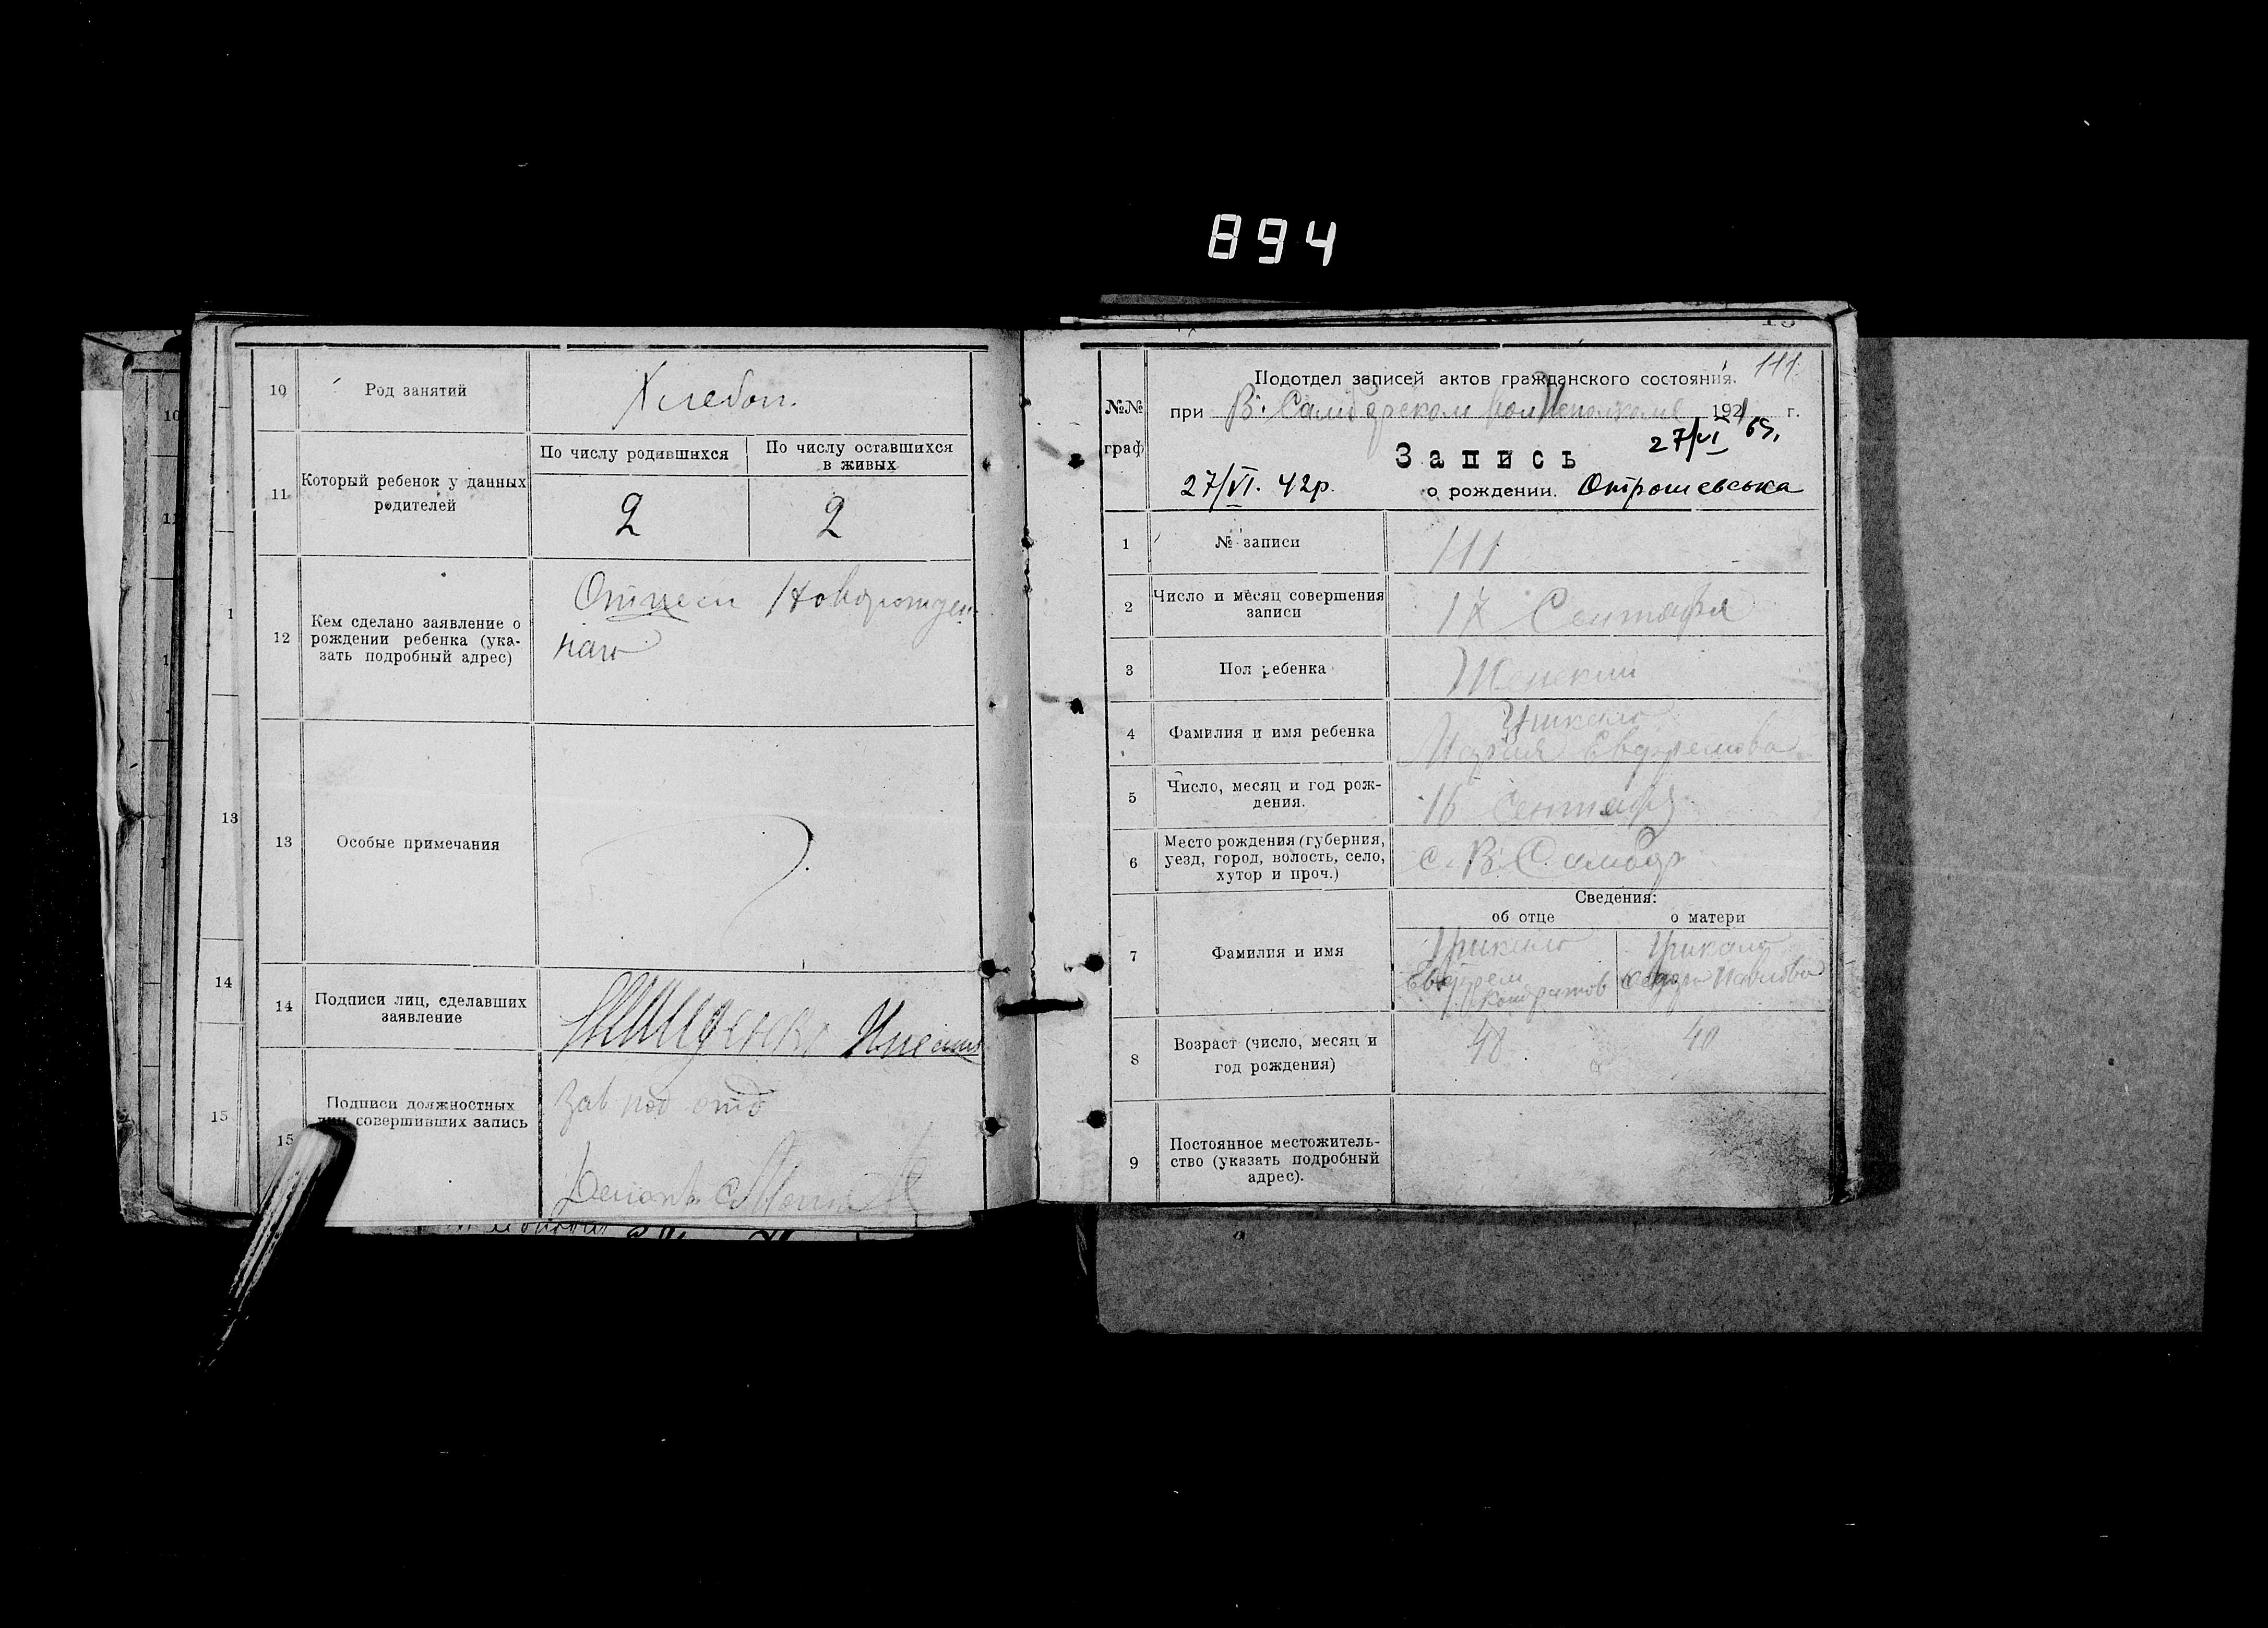 894
10
Род занятий
Хлебоп.
11
Который ребенок у данных
родителей
По числу родившихся
По числу оставшихся
в живых
2
2
12
Кем сделано заявление о
рождении ребенка (ука-
зать подробный адрес)
Отцем Новорожден
наго
13
Особые примечания
14
Подписи лиц, сделавших
заявление
15
Подписи должностных
лиц совершивших запись
Зав под отд
10
11
1
13
14
15
111
Подотдел записей актов гражданского состояния.
№№
граф
при В. Самборском 1921 г.
27/VI 69.
Запись
27/VI. 42р.
о рождении. Отрошевська
1
№ записи
111
2
Число и месяц совершения
записи
17 Сентября
3
Пол ребенка
Женский
4
Фамилия и имя ребенка
Мария Евфремова
5
Число, месяц и год рож-
дения.
16 Сентября
6
Место рождения (губерния,
уезд, город, волость, село,
хутор и проч.)
с. В. Самбор
Сведения:
об отце
о матери
7
Фамилия и имя
Евфрем
Кондратов
Павлова
8
Возраст (число, месяц и
год рождения)
40
40
9
Постоянное местожитель-
ство (указать подробный
адрес).